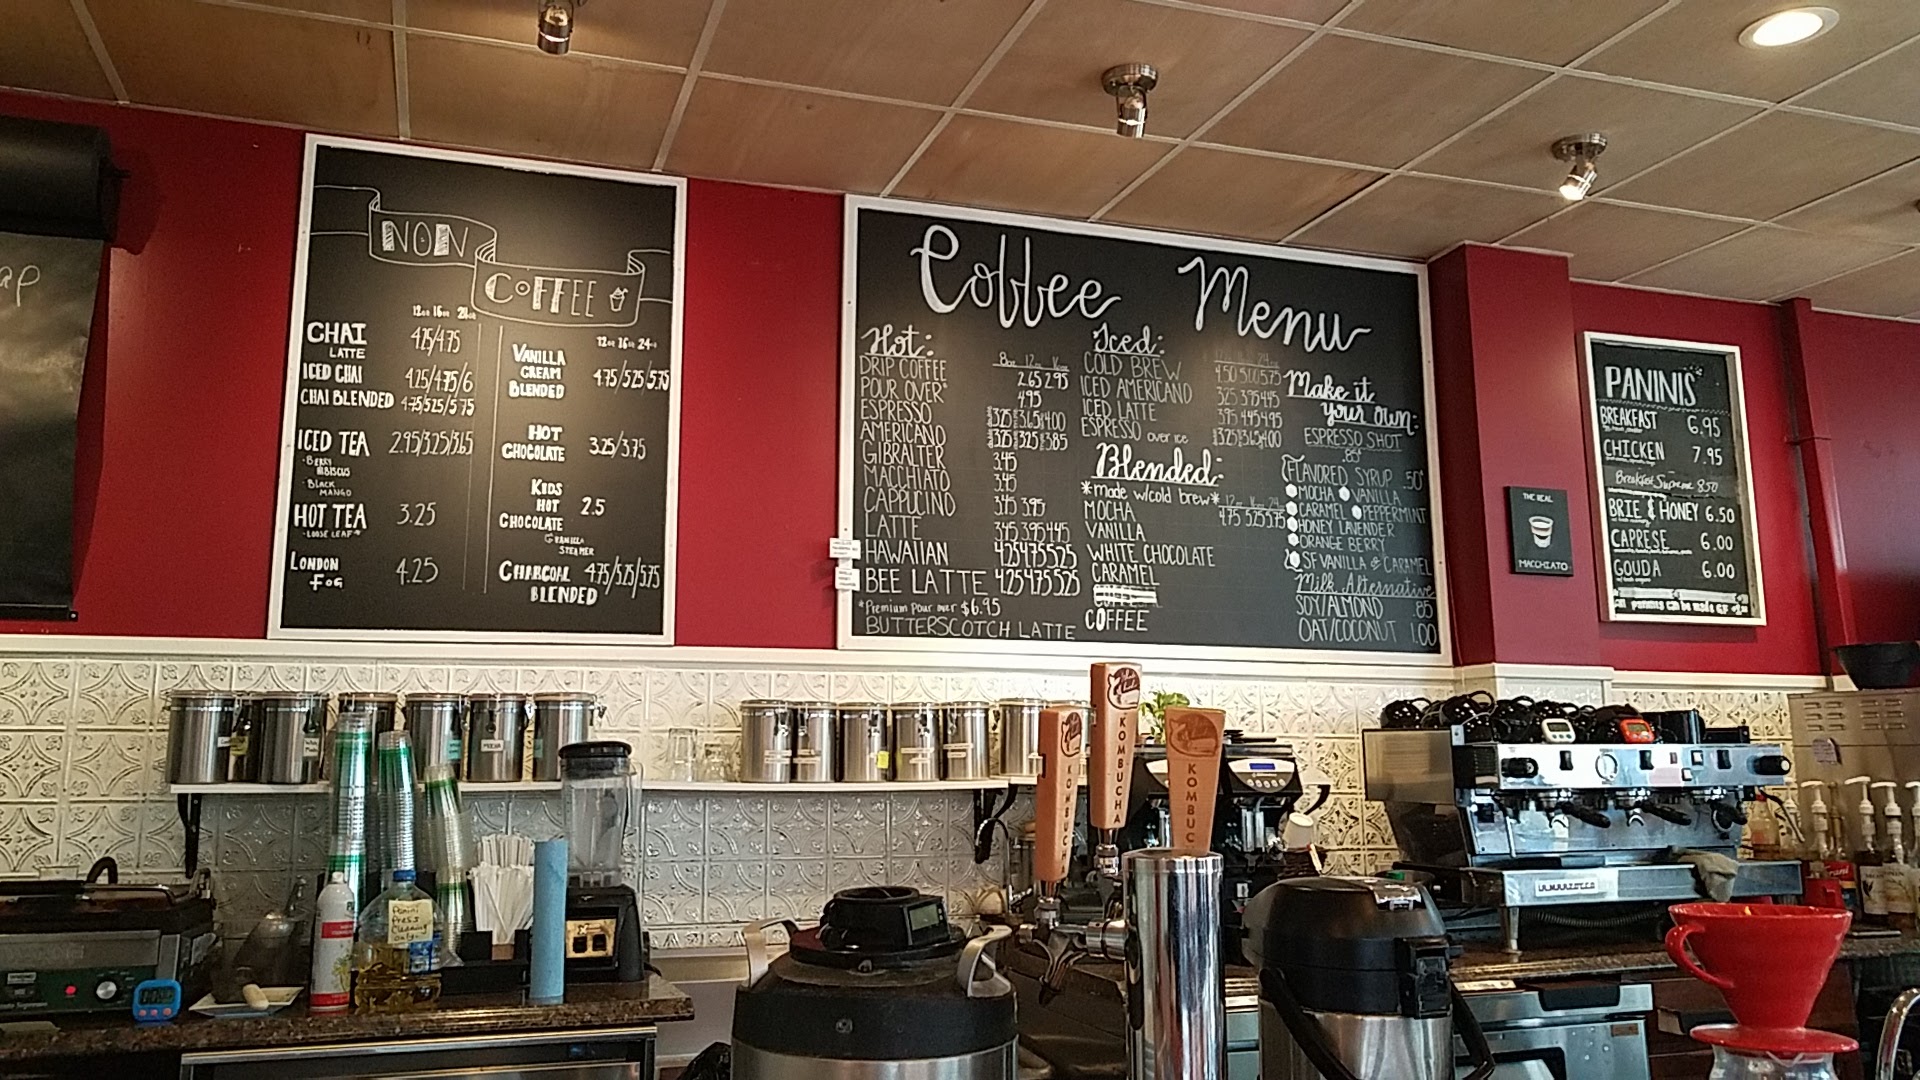 ap
NON
COFFEE
12oz 16oz 24oz
CHAI 4.25/4.75
LATTE
ICED CHAI 4.25/4.75/6
CHAI BLENDED 4.75/5.25/5.75
ICED TEA 2.95/3.25/3.65
· BERRY
HIBISCUS
· BLACK
MANGO
HOT TEA 3.25
· LOOSE LEAF ·
LONDON
FOG 4.25
12oz 16oz 24oz
VANILLA
CREAM 4.75/5.25/5.75
BLENDED
HOT
CHOCOLATE 3.25/3.75
KIDS
HOT 2.5
CHOCOLATE
VANILLA
STEAMER
CHARCOAL 4.75/5.25/5.75
BLENDED
Coffee Menu
Hot:
8oz 12oz 16oz
DRIP COFFEE 2.65 2.95
POUR OVER* 4.95
ESPRESSO 3.25 3.65 4.00
AMERICANO 3.25 3.25 3.85
GIBRALTER 3.45
MACCHIATO 3.45
CAPPUCINO 3.45 3.95
LATTE 3.45 3.95 4.45
HAWAIIAN 4.25 4.75 5.25
BEE LATTE 4.25 4.75 5.25
*Premium Pour over $6.95
BUTTERSCOTCH LATTE
Iced:
COLD BREW 4.50 5.00 5.75
ICED AMERICANO 3.25 3.95 4.45
ICED LATTE 3.95 4.45 4.95
ESPRESSO over ice 3.25 3.65 4.00
Blended:
*made w/cold brew*
12oz 16oz 24oz
MOCHA 4.75 5.25 5.75
VANILLA
WHITE CHOCOLATE
CARAMEL
COFFEE
Make it
your own:
ESPRESSO SHOT
.85¢
FLAVORED SYRUP .50¢
MOCHA VANILLA
CARAMEL PEPPERMINT
HONEY LAVENDER
ORANGE BERRY
SF VANILLA & CARAMEL
Milk Alternative
SOY/ALMOND .85
OAT/COCONUT 1.00
THE REAL
MACCHIATO
PANINIS
BREAKFAST 6.95
CHICKEN 7.95
Breakfast Supreme 8.50
BRIE & HONEY 6.50
CAPRESE 6.00
GOUDA 6.00
KOMBUCHA
KOMBUCHA
KOMBUC
Panini
Press
Cleaning
only